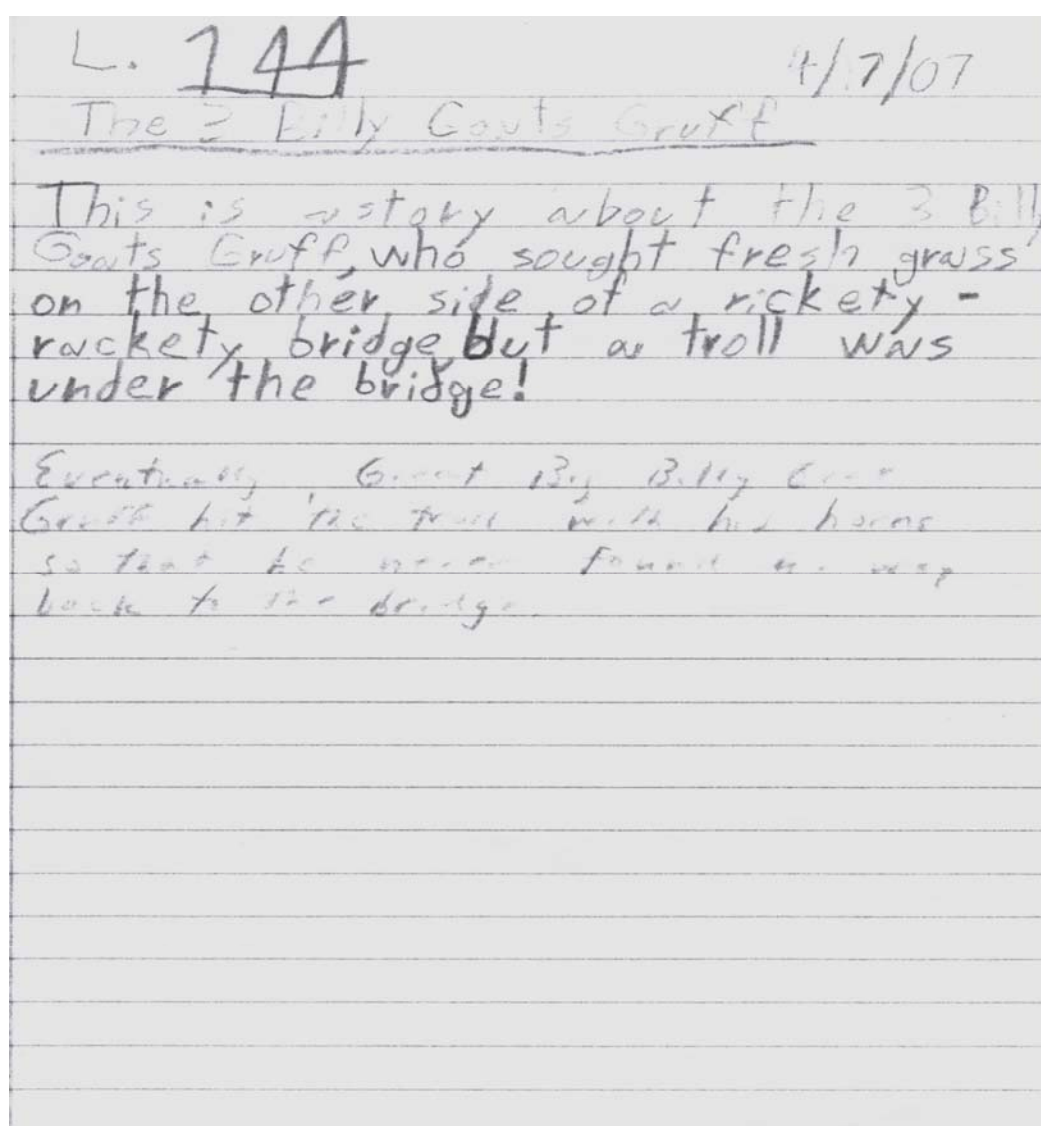 L. 144 4/7/07
The 3 Billy Goats Gruff
This is a story about the 3 Billy
Goats Gruff, who sought fresh grass
on the other side of a rickety-
rackety bridge, but a troll was
under the bridge!
Eventually Great Big Billy Goat
Gruff hit the troll with his horns
so that he never found his way
back to the bridge.